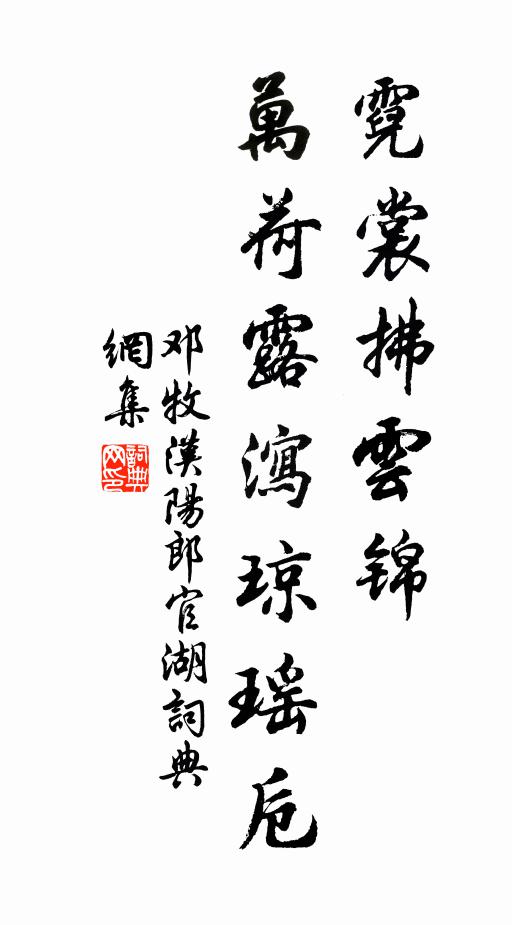 霓裳拂雲锦
萬荷露瀉琼瑶卮
邓牧漢陽郎官湖詞典
網集
詞典
网印